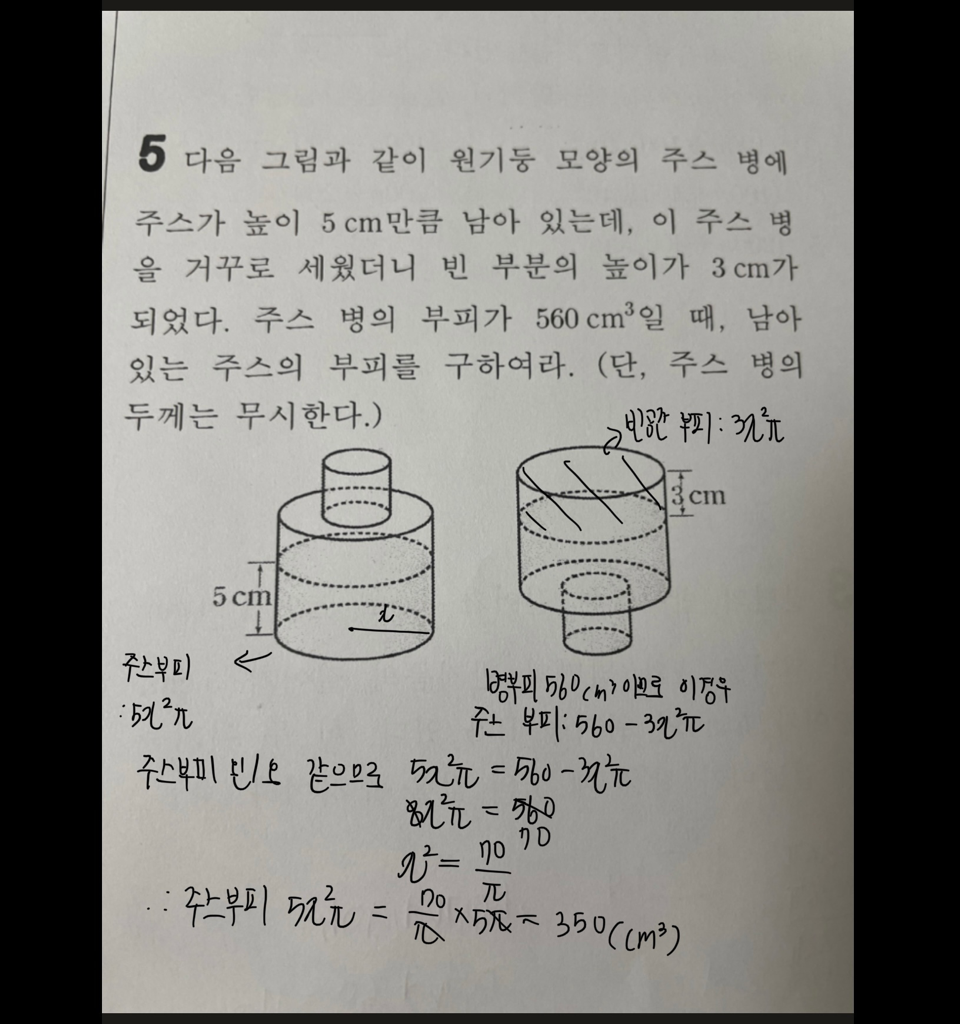 5 다음 그림과 같이 원기둥 모양의 주스 병에
주스가 높이 5 cm만큼 남아 있는데, 이 주스 병
을 거꾸로 세웠더니 빈 부분의 높이가 3 cm가
되었다. 주스 병의 부피가 560 cm³일 때, 남아
있는 주스의 부피를 구하여라. (단, 주스 병의
두께는 무시한다.)
빈공간 부피: 3x²π
3 cm
5 cm
x
주스부피
: 5x²π
병부피 560cm³이므로 이경우
주스 부피: 560 - 3x²π
주스부피 같으므로 5x²π = 560 - 3x²π
8x²π = 560
70
x² = 70/π
∴ 주스부피 5x²π = 70/π × 5π = 350 (cm³)